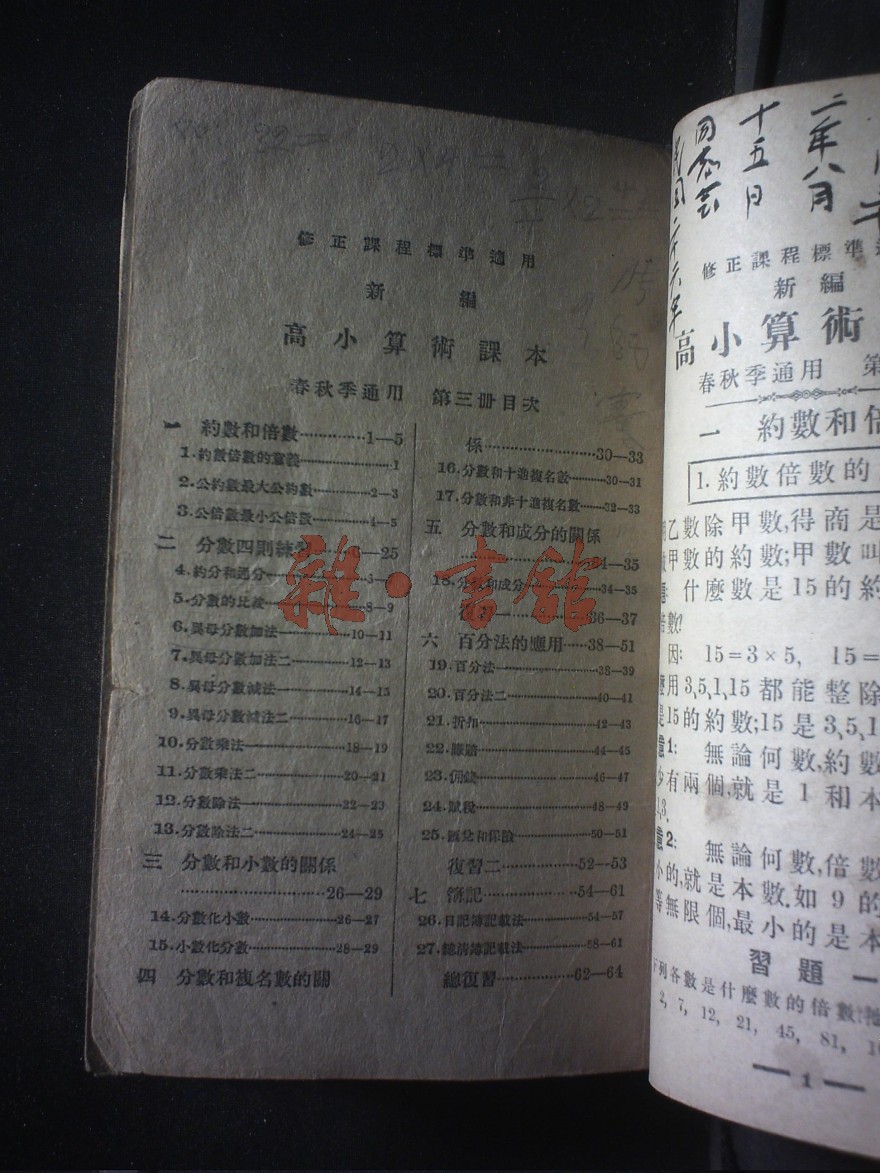 修正課程標準適用
新編
高小算術課本
春秋季通用 第三册目次
一 約數和倍數…………1—5
1.約數倍數的意義…………1
2.公約數最大公約數…………2—3
3.公倍數最小公倍數…………4—5
二 分數四則練習……6—25
4.約分和通分
5.分數的比較…………8—9
6.異母分數加法…………10—11
7.異母分數加法二…………12—13
8.異母分數減法…………14—15
9.異母分數減法二…………16—17
10.分數乘法…………18—19
11.分數乘法二…………20—21
12.分數除法…………22—23
13.分數除法二…………24—25
三 分數和小數的關係
…………26—29
14.分數化小數…………26—27
15.小數化分數…………28—29
四 分數和複名數的關
係…………30—33
16.分數和十進複名數…………30—31
17.分數和非十進複名數…………32—33
五 分數和成分的關係
…………34—35
18.分數和成分…………34—35
36—37
六 百分法的應用……38—51
19.百分法…………38—39
20.百分法二…………40—41
21.折扣…………42—43
22.賺賠…………44—45
23.佣錢…………46—47
24.賦稅…………48—49
25.匯兌和保險…………50—51
復習二…………52—53
七 簿記…………54—61
26.日記簿記載法…………54—57
27.總清簿記載法…………58—61
總復習…………62—64
雜·書館
二年八月
十五日
修正課程標準適
新編
高小算術
春秋季通用 第
一 約數和倍
1.約數倍數的
乙數除甲數,得商是
甲數的約數;甲數叫
什麼數是15的約
倍數?
因: 15=3×5, 15=
用3,5,1,15都能整除
是15的約數;15是3,5,1
1: 無論何數,約數
少有兩個,就是1和本
1,3.
2: 無論何數,倍數
小的,就是本數.如9的
等無限個,最小的是本
習題一
下列各數是什麼數的倍數?
2, 7, 12, 21, 45, 81,
— 1 —